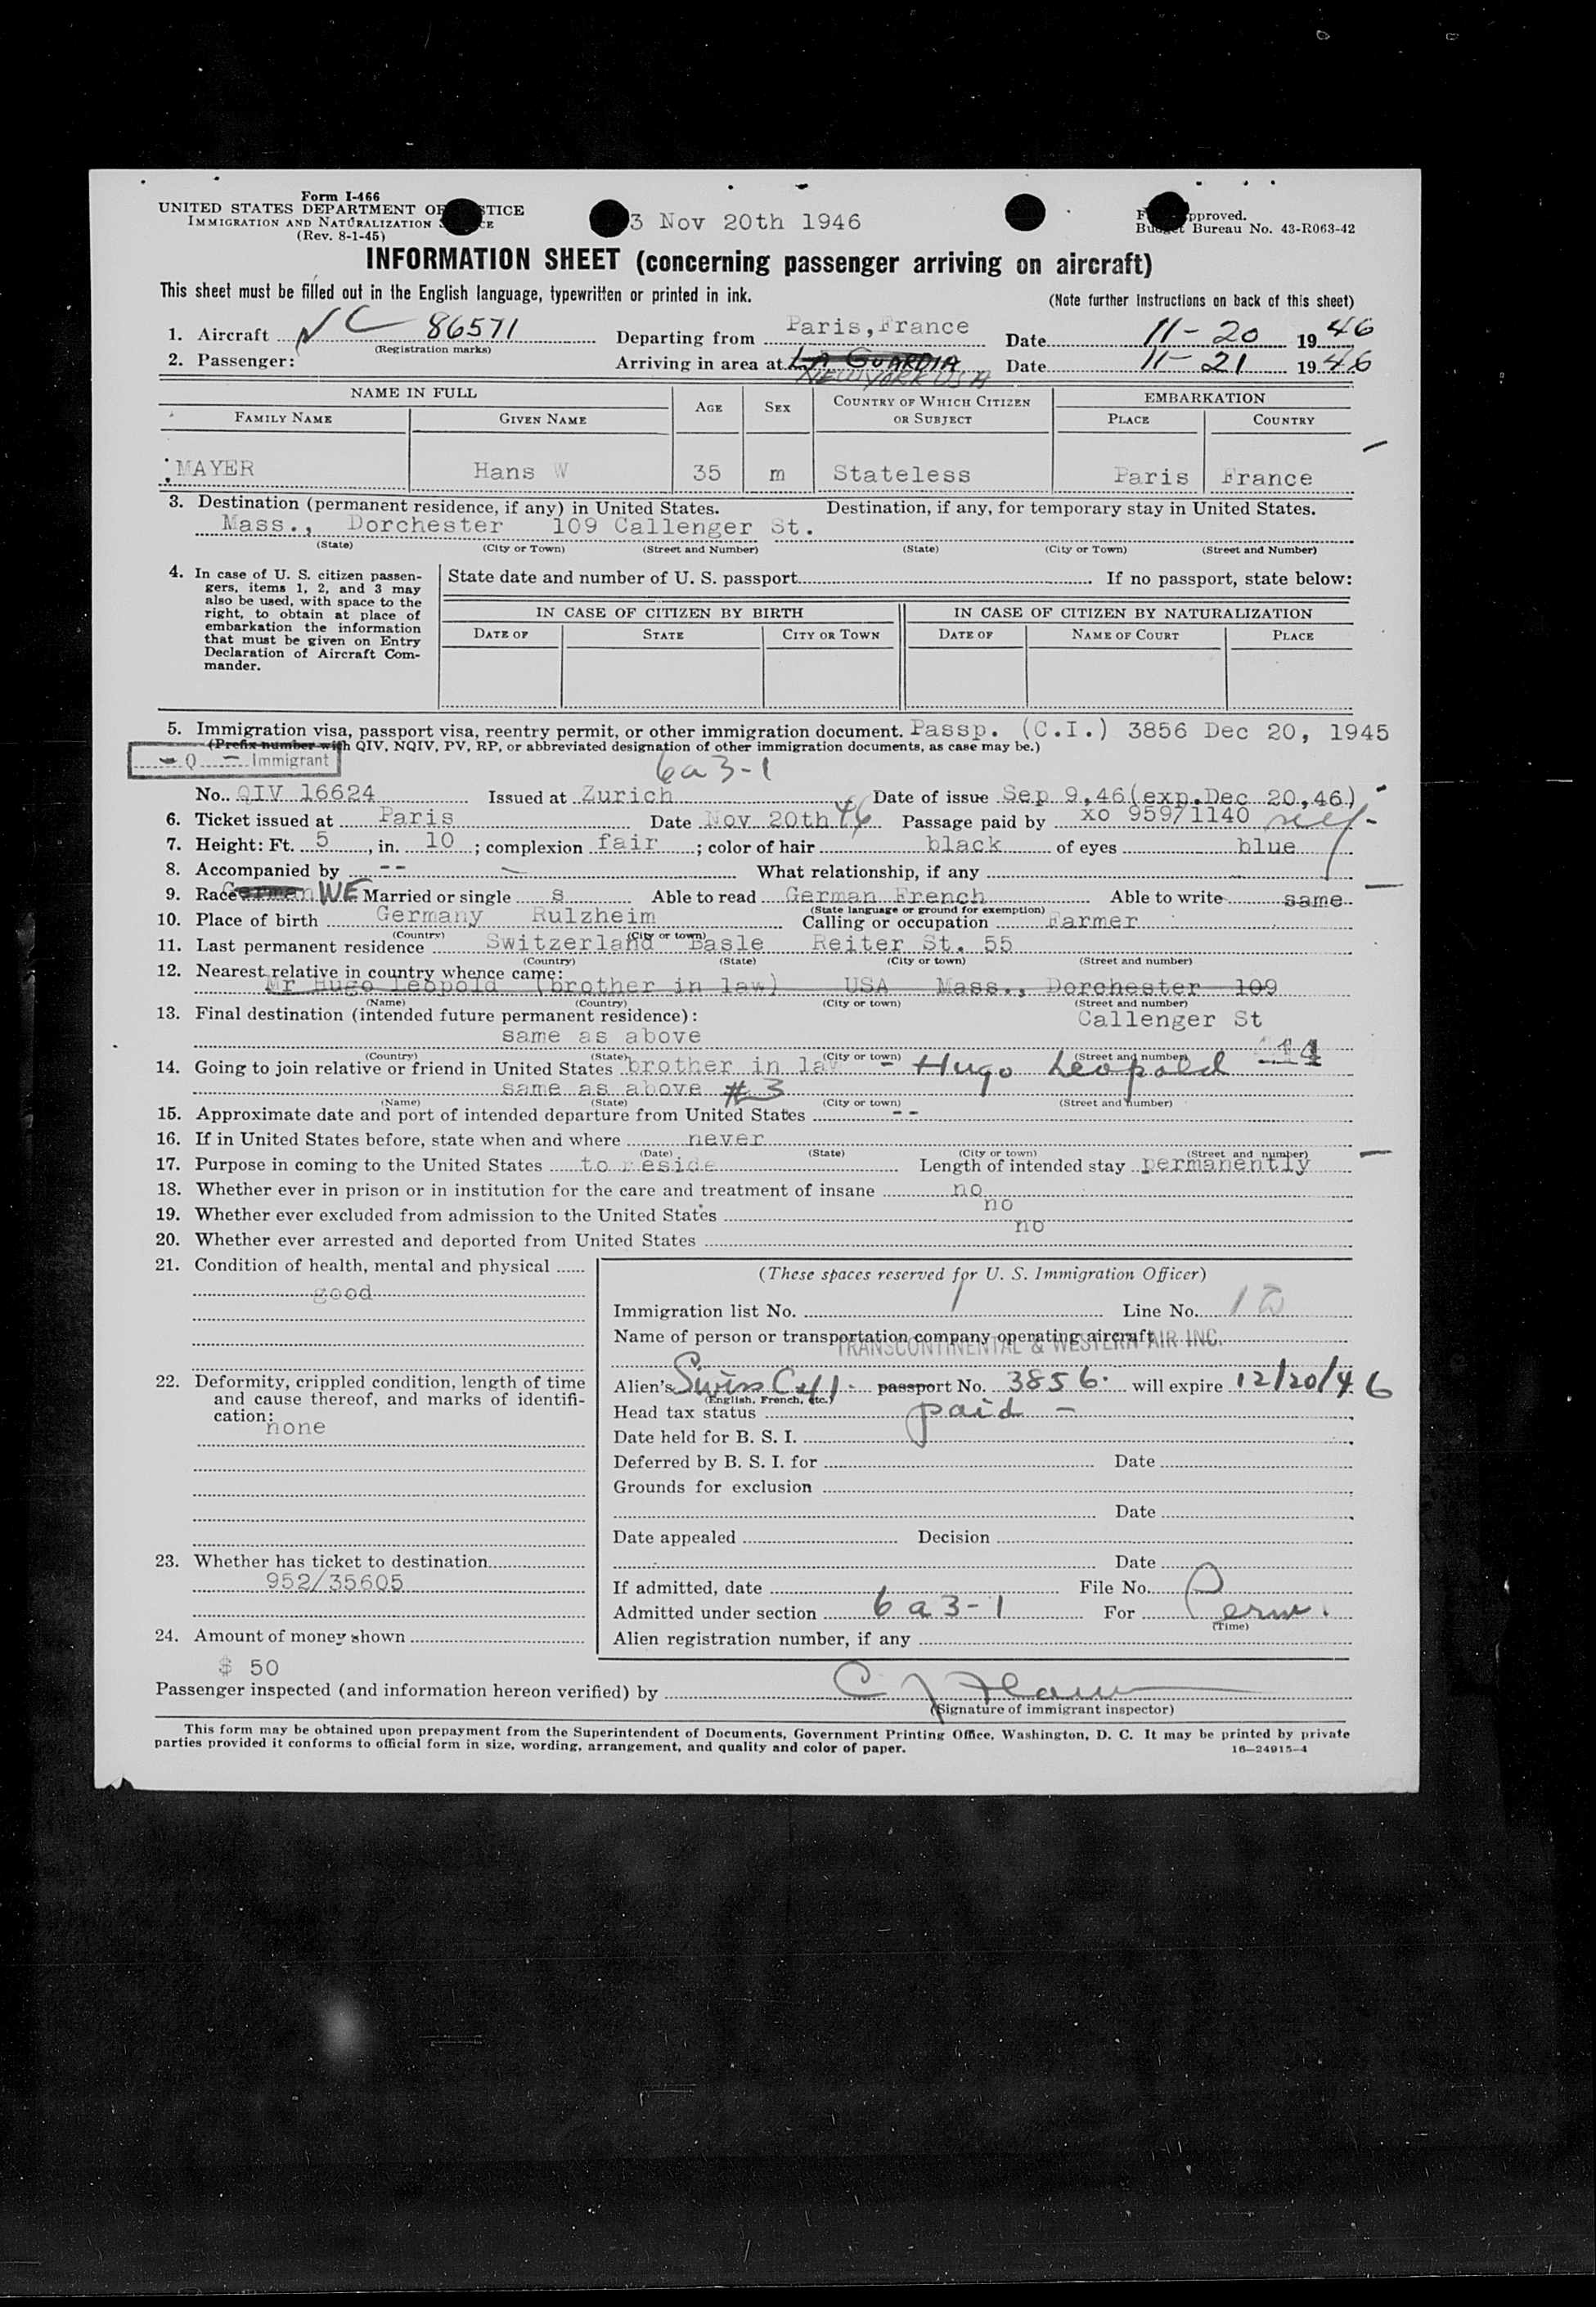 Form I-466
UNITED STATES DEPARTMENT OF JUSTICE
IMMIGRATION AND NATURALIZATION SERVICE
(Rev. 8-1-45)
3 Nov 20th 1946
Form approved.
Budget Bureau No. 43-R063-42
INFORMATION SHEET (concerning passenger arriving on aircraft)
This sheet must be filled out in the English language, typewritten or printed in ink.
(Note further instructions on back of this sheet)
1. Aircraft NC 86571 Departing from Paris, France Date 11-20 1946
(Registration marks)
2. Passenger: Arriving in area at LA GUARDIA Date 11-21 1946
NEW YORK USA
NAME IN FULL AGE SEX COUNTRY OF WHICH CITIZEN OR SUBJECT EMBARKATION
FAMILY NAME GIVEN NAME PLACE COUNTRY
MAYER Hans W 35 m Stateless Paris France
3. Destination (permanent residence, if any) in United States. Destination, if any, for temporary stay in United States.
Mass., Dorchester 109 Callenger St.
(State) (City or Town) (Street and Number) (State) (City or Town) (Street and Number)
4. In case of U. S. citizen passen-
gers, items 1, 2, and 3 may
also be used, with space to the
right, to obtain at place of
embarkation the information
that must be given on Entry
Declaration of Aircraft Com-
mander.
State date and number of U. S. passport If no passport, state below:
IN CASE OF CITIZEN BY BIRTH IN CASE OF CITIZEN BY NATURALIZATION
DATE OF STATE CITY OR TOWN DATE OF NAME OF COURT PLACE
5. Immigration visa, passport visa, reentry permit, or other immigration document. Passp. (C.I.) 3856 Dec 20, 1945
(Prefix number with QIV, NQIV, PV, RP, or abbreviated designation of other immigration documents, as case may be.)
Q Immigrant
6a3-1
No. QIV 16624 Issued at Zurich Date of issue Sep 9,46(exp.Dec 20,46)
6. Ticket issued at Paris Date Nov 20th 46 Passage paid by xo 959/1140 self
7. Height: Ft. 5, in. 10; complexion fair; color of hair black of eyes blue
8. Accompanied by -- What relationship, if any
9. Race German WE Married or single s Able to read German French Able to write same
(State language or ground for exemption)
10. Place of birth Germany Rulzheim Calling or occupation Farmer
(Country) (City or town)
11. Last permanent residence Switzerland Basle Reiter St. 55
(Country) (State) (City or town) (Street and number)
12. Nearest relative in country whence came:
Mr Hugo Leopold (brother in law) USA Mass., Dorchester 109
(Name) (Country) (City or town) (Street and number)
13. Final destination (intended future permanent residence): Callenger St
same as above
(Country) (State) (City or town) (Street and number)
14. Going to join relative or friend in United States brother in law - Hugo Leopold
same as above #3
(Name) (State) (City or town) (Street and number)
15. Approximate date and port of intended departure from United States --
16. If in United States before, state when and where never
(Date) (State) (City or town) (Street and number)
17. Purpose in coming to the United States to reside Length of intended stay permanently
18. Whether ever in prison or in institution for the care and treatment of insane no
19. Whether ever excluded from admission to the United States no
20. Whether ever arrested and deported from United States no
21. Condition of health, mental and physical
good
22. Deformity, crippled condition, length of time
and cause thereof, and marks of identifi-
cation:
none
23. Whether has ticket to destination
952/35605
24. Amount of money shown
$ 50
(These spaces reserved for U. S. Immigration Officer)
Immigration list No. 1 Line No.
Name of person or transportation company operating aircraft
TRANSCONTINENTAL & WESTERN AIR INC.
Alien's Swiss passport No. 3856. will expire 12/20/46
(English, French, etc.)
Head tax status paid -
Date held for B. S. I.
Deferred by B. S. I. for Date
Grounds for exclusion
Date
Date appealed Decision
Date
If admitted, date File No.
Admitted under section 6a3-1 For Perm.
(Time)
Alien registration number, if any
Passenger inspected (and information hereon verified) by
(Signature of immigrant inspector)
This form may be obtained upon prepayment from the Superintendent of Documents, Government Printing Office, Washington, D. C. It may be printed by private
parties provided it conforms to official form in size, wording, arrangement, and quality and color of paper.
16—24915-4